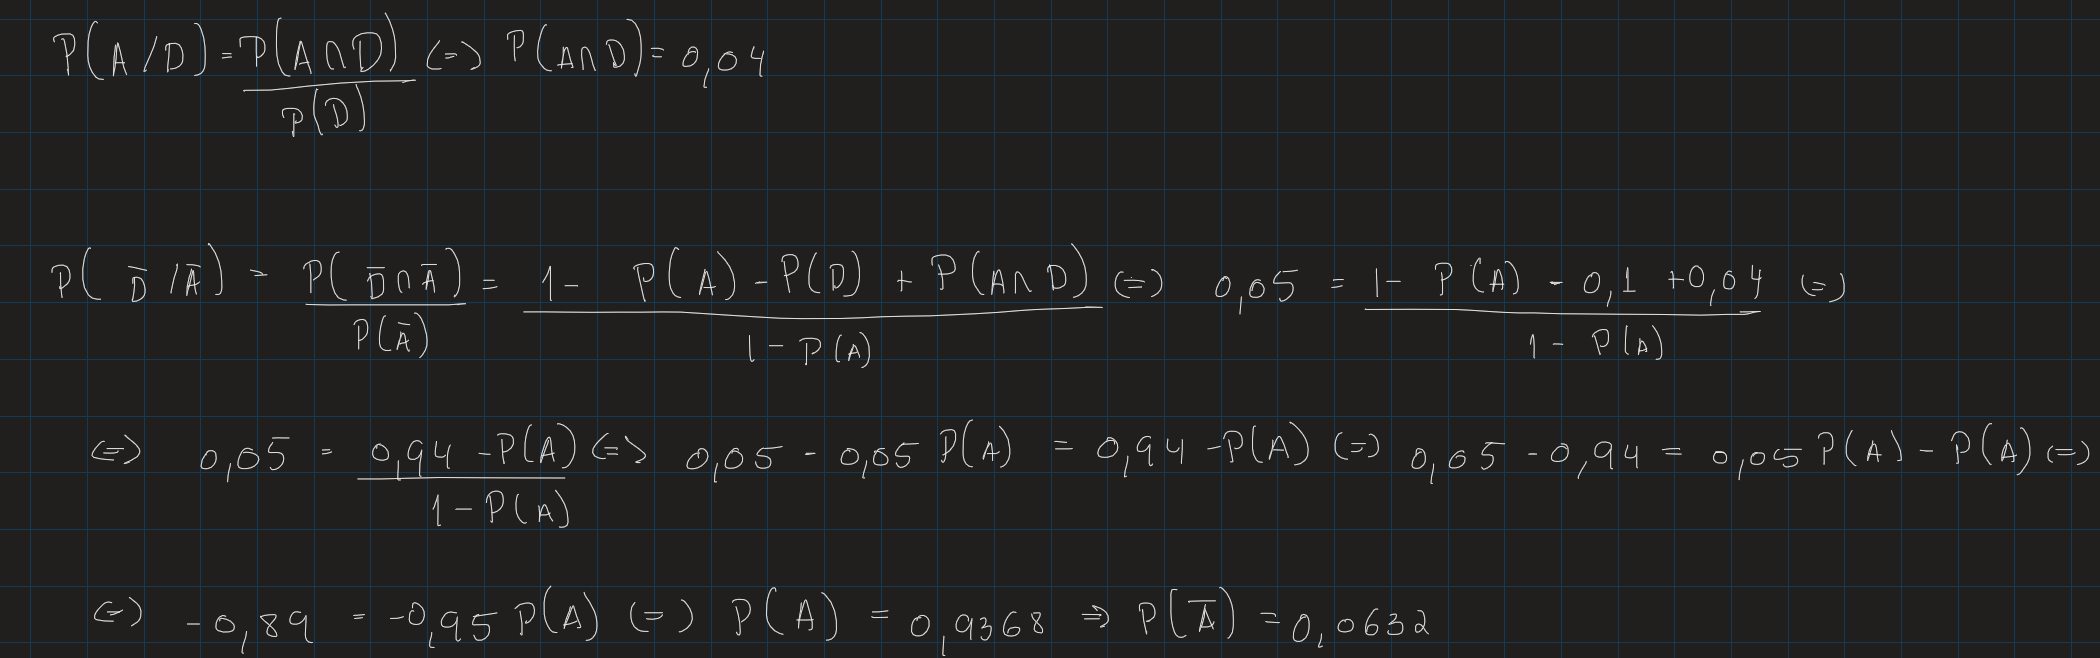 P(A/D) = P(A∩D)/P(D) (=) P(A∩D) = 0,04
P(D̅/A̅) = P(D̅∩A̅)/P(A̅) = (1 - P(A) - P(D) + P(A∩D))/(1 - P(A)) (=) 0,05 = (1 - P(A) - 0,1 + 0,04)/(1 - P(A)) (=)
(=) 0,05 = (0,94 - P(A))/(1 - P(A)) (=) 0,05 - 0,05 P(A) = 0,94 - P(A) (=) 0,05 - 0,94 = 0,05 P(A) - P(A) (=)
(=) -0,89 = -0,95 P(A) (=) P(A) = 0,9368 ⇒ P(A̅) = 0,0632